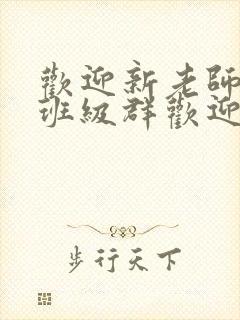 歡迎新老師
班級群歡迎
步行天下